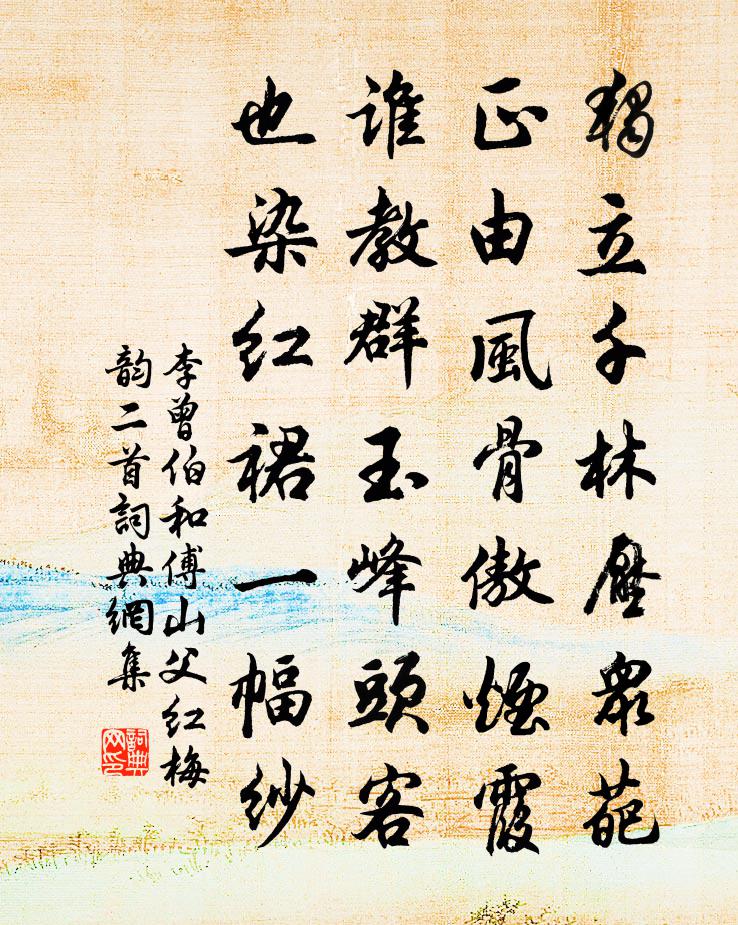 獨立千林壓衆葩
正由風骨傲煙霞
誰教群玉峰頭客
也染紅裙一幅紗
李曾伯和傅山父紅梅
韵二首詞典網集
詞典網印